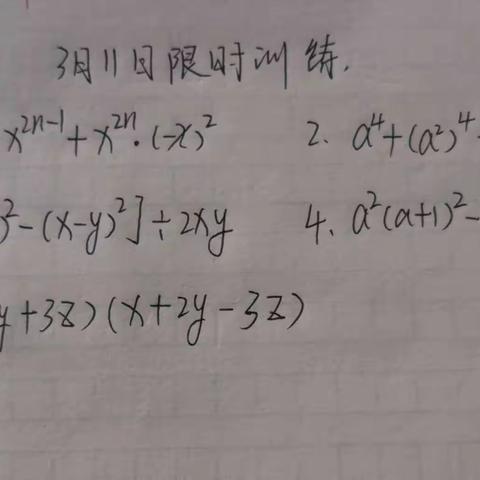 3月11日限时训练.
x^{2n-1}+x^{2n}·(-x)^2 2. a^4+(a^2)^4
)^2-(x-y)^2]÷2xy 4. a^2(a+1)^2-
y+3z)(x+2y-3z)